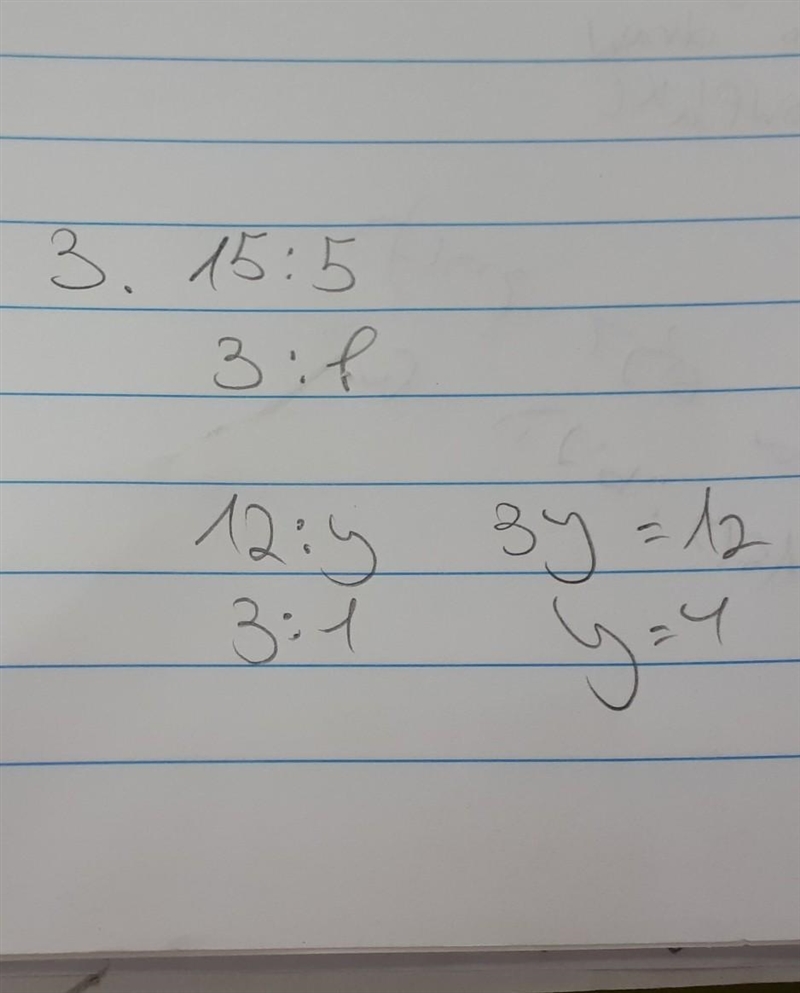 3. 15:5
3:1
12:y 3y = 12
3:1 y=4